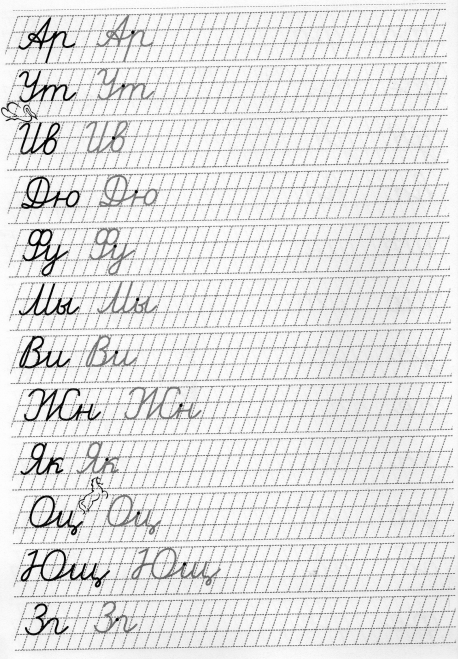 Ар Ар
Ут Ут
Ив Ив
Дю Дю
Фу Фу
Мы Мы
Ви Ви
Жн Жн
Як Як
Оц Оц
Ющ Ющ
Зп Зп